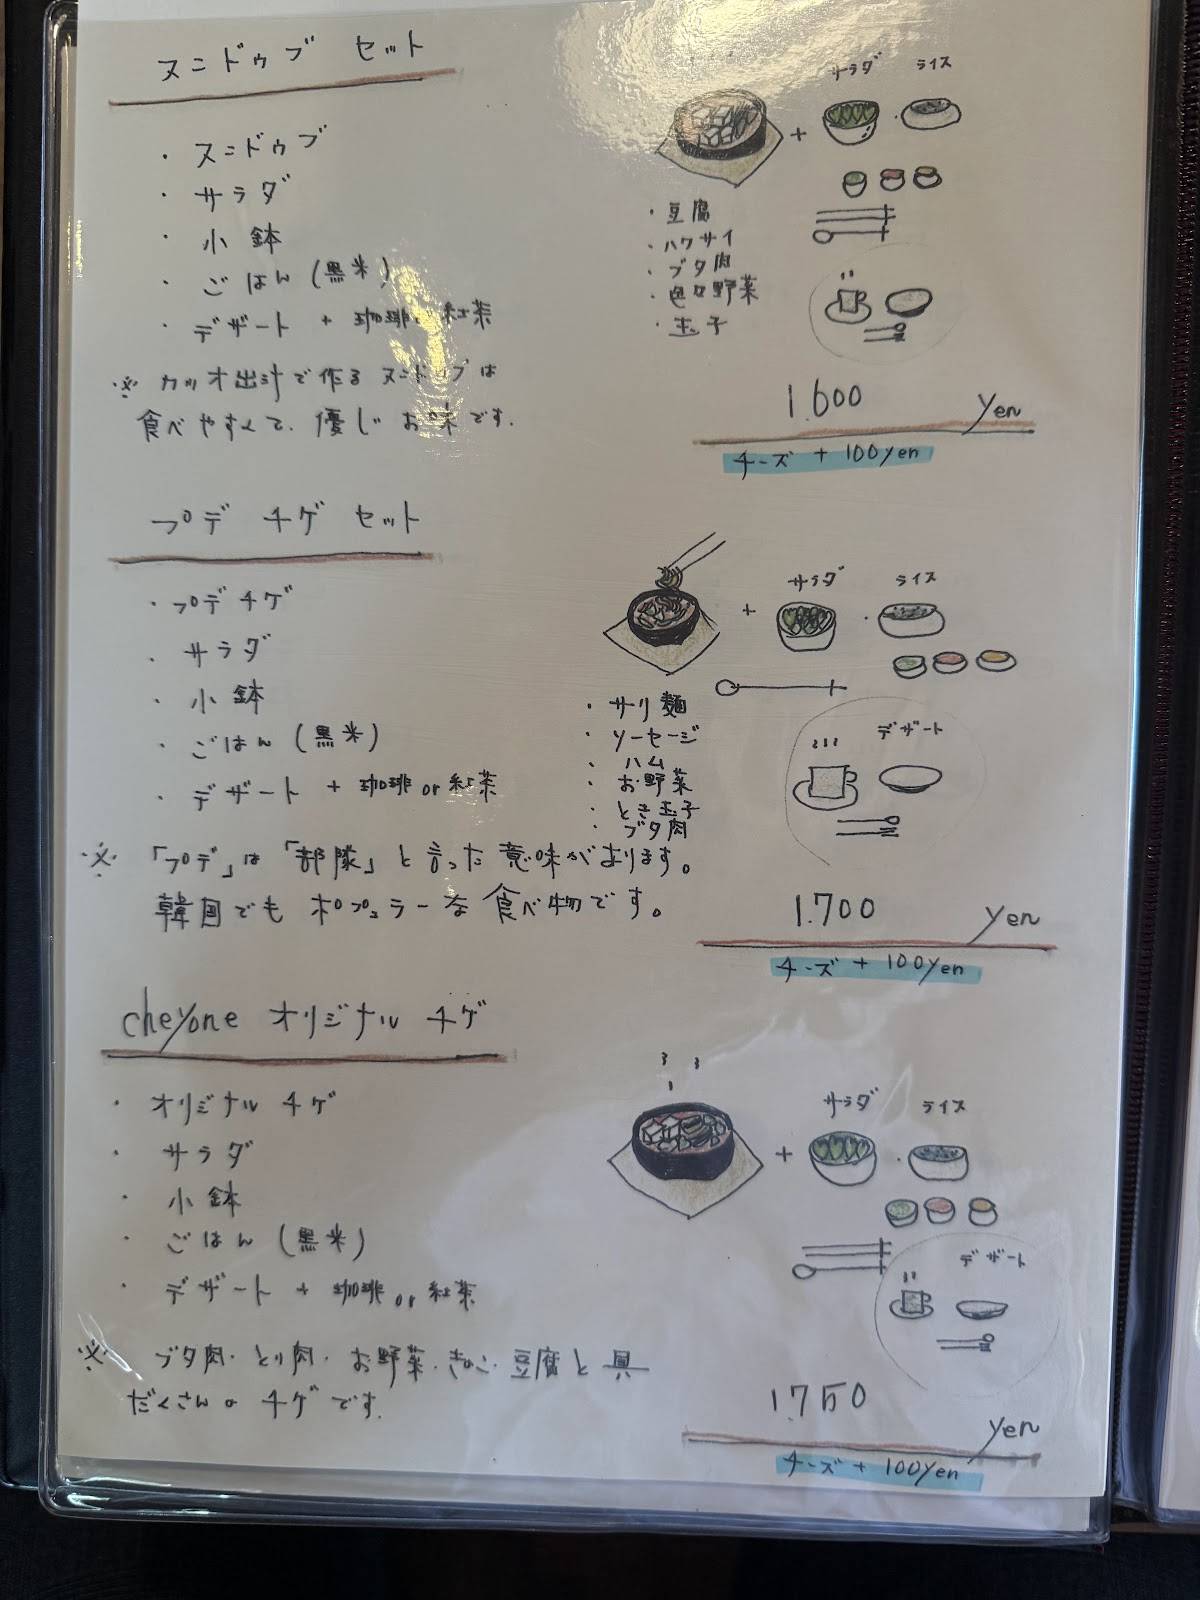 スンドゥブ セット
・ スンドゥブ
・ サラダ
・ 小鉢
・ ごはん (黒米)
・ デザート + 珈琲 or 紅茶
※ カツオ出汁で作るスンドゥブは
食べやすくて、優しいお味です.
サラダ ライス
+ ・
・豆腐
・ハクサイ
・ブタ肉
・色々野菜
・玉子
1.600 yen
チーズ + 100yen
プデ チゲ セット
・プデチゲ
・ サラダ
・ 小鉢
・ ごはん (黒米)
・ デザート + 珈琲 or 紅茶
サラダ ライス
+ ・
・サリ麺
・ソーセージ
・ハム
・お野菜
・とき玉子
・ブタ肉
デザート
※ 「プデ」は「部隊」と言った意味があります。
韓国でもポプュラーな食べ物です。
1.700 yen
チーズ + 100yen
cheyone オリジナル チゲ
・ オリジナル チゲ
・ サラダ
・ 小鉢
・ ごはん (黒米)
・ デザート + 珈琲 or 紅茶
サラダ ライス
+ ・
デザート
※ ブタ肉・とり肉・お野菜・きのこ・豆腐と具
だくさんのチゲです.
1.750 yen
チーズ + 100yen